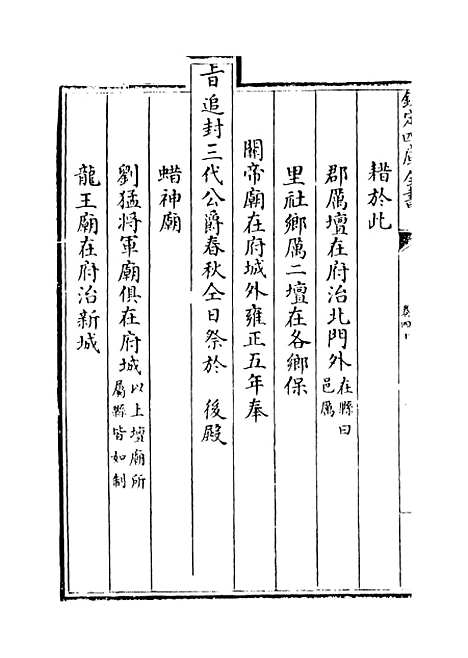 欽定四庫全書
卷四十
耤於此
郡厲壇在府治北門外在縣曰邑厲
里社鄉厲二壇在各鄉保
關帝廟在府城外雍正五年奉
旨追封三代公爵春秋仝日祭於 後殿
蜡神廟
劉猛將軍廟俱在府城以上壇廟所屬縣皆如制
龍王廟在府治新城